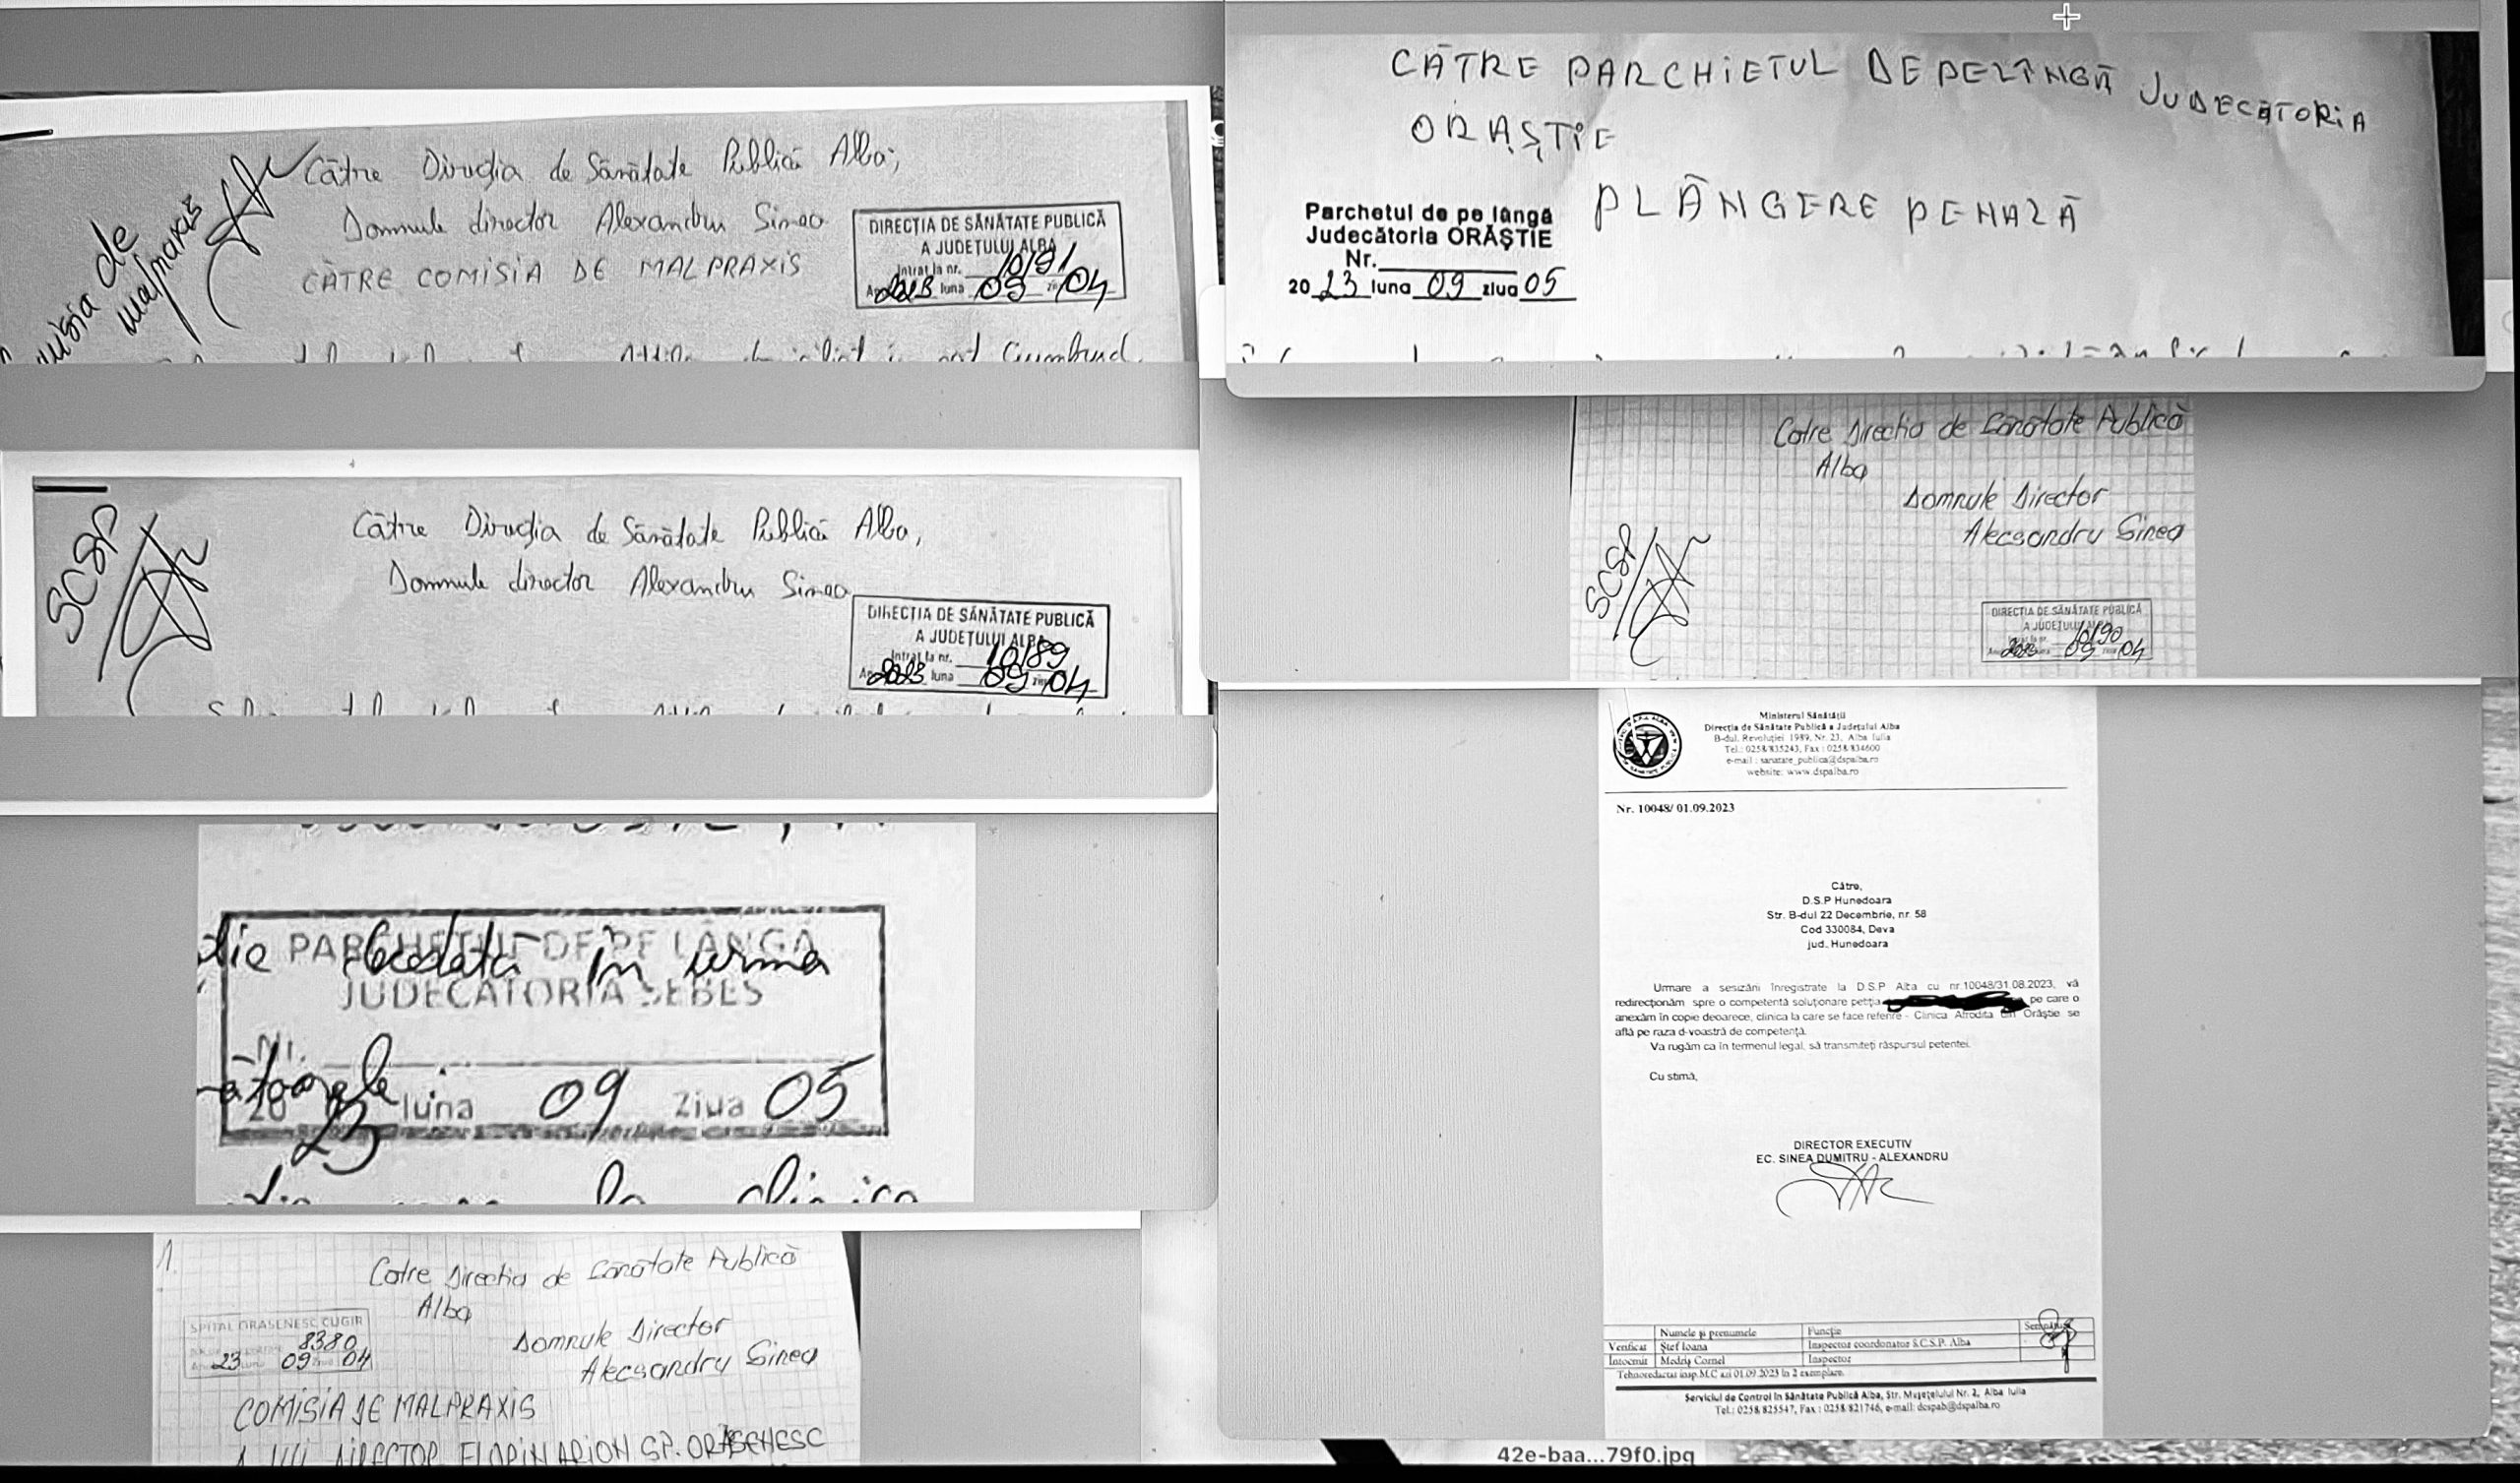 Către Direcția de Sănătate Publică Alba,
Domnule director Alexandru Sinea
CĂTRE COMISIA DE MALPRAXIS
de
malpraxis
DIRECȚIA DE SĂNĂTATE PUBLICĂ
A JUDEȚULUI ALBA
Intrat la nr. 10191
2023 luna 09 04
CĂTRE PARCHIETUL DEPELÎNGĂ JUDECĂTORIA
ORAȘTIE
PLÂNGERE PENALĂ
Parchetul de pe lângă
Judecătoria ORĂȘTIE
Nr.
2023 luna 09 ziua 05
Catre Directia de Sănătate Publică
Alba
Domnule Director
Alecsandru Sinea
SCSP
DIRECȚIA DE SĂNĂTATE PUBLICĂ
A JUDEȚULUI
10190
2023 09 04
SCSP
Către Direcția de Sănătate Publică Alba,
Domnule director Alexandru Sinea
DIRECȚIA DE SĂNĂTATE PUBLICĂ
A JUDEȚULUI ALBA
Intrat la nr. 10189
2023 luna 09 04
PARCHETUL DE PE LÂNGĂ
JUDECĂTORIA SEBEȘ
în urma
Nr.
2023 luna 09 Ziua 05
la clinica
1.
Catre Directia de Sănătate Publică
Alba
Domnule Director
Alecsandru Sinea
SPITAL ORASENESC CUGIR
8380
23 09 04
COMISIA DE MALPRAXIS
DIRECTOR FLORIN ARION SP. ORĂSENESC
Ministerul Sănătății
Direcția de Sănătate Publică a Județului Alba
B-dul. Revoluției 1989, Nr. 23, Alba Iulia
Tel.: 0258/835243, Fax : 0258/834600
e-mail : sanatate_publica@dspalba.ro
website: www.dspalba.ro
Nr. 10048/ 01.09.2023
Către,
D.S.P Hunedoara
Str. B-dul 22 Decembrie, nr. 58
Cod 330084, Deva
jud. Hunedoara
Urmare a sesizării înregistrate la D.S.P Alba cu nr.10048/31.08.2023, vă
redirecționăm spre o competentă soluționare petiția pe care o
anexăm în copie deoarece, clinica la care se face referire - Clinica Afrodita din Orăștie se
află pe raza d-voastră de competență.
Va rugăm ca în termenul legal, să transmiteți răspunsul petentei.
Cu stimă,
DIRECTOR EXECUTIV
EC. SINEA DUMITRU - ALEXANDRU
Numele și prenumele Funcție Semnătura
Verificat Ștef Ioana Inspector coordonator S.C.S.P. Alba
Întocmit Medrea Cornel Inspector
Tehnoredactat insp.M.C azi 01.09.2023 în 2 exemplare.
Serviciul de Control în Sănătate Publică Alba, Str. Mușețelului Nr. 2, Alba Iulia
Tel.: 0258/825547, Fax : 0258/821746, e-mail: dcspab@dspalba.ro
42e-baa...79f0.jpg